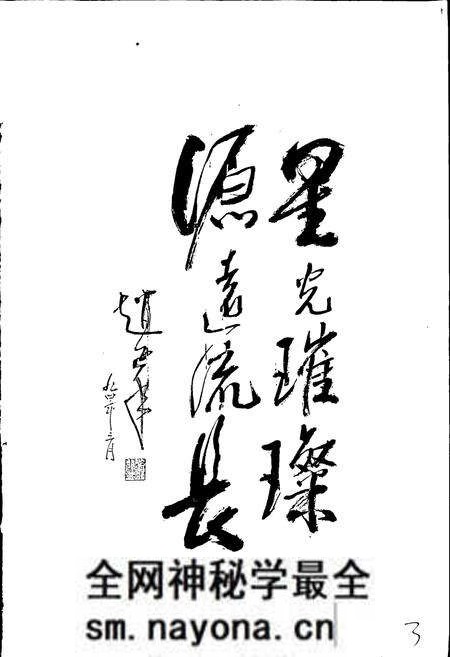 星光璀璨
源遠流長
九四年二月
全网神秘学最全
sm.nayona.cn
3